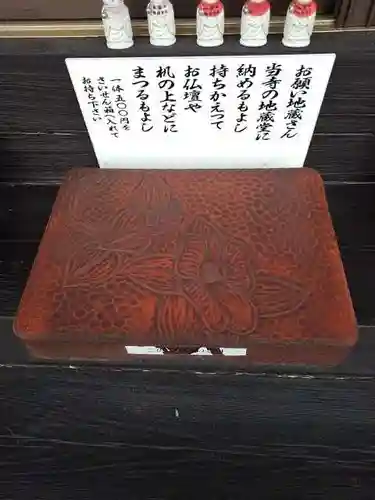 お願い地蔵さん
当寺の地蔵堂に
納めるもよし
持ちかえって
お仏壇や
机の上などに
まつるもよし
一体五〇〇円を
さいせん箱へ入れて
お持ち下さい